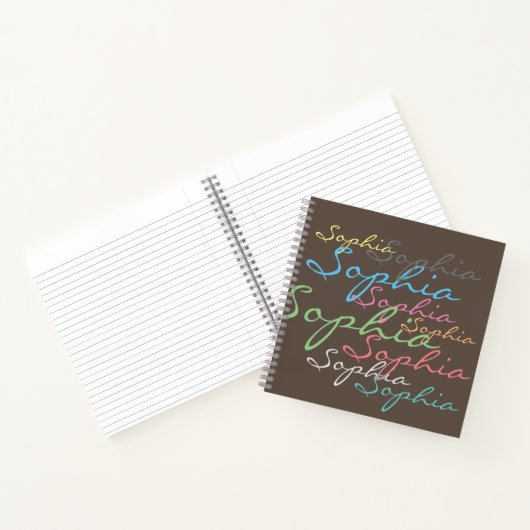 Sophia
Sophia
Sophia
Sophia
Sophia
Sophia
Sophia
Sophia
Sophia